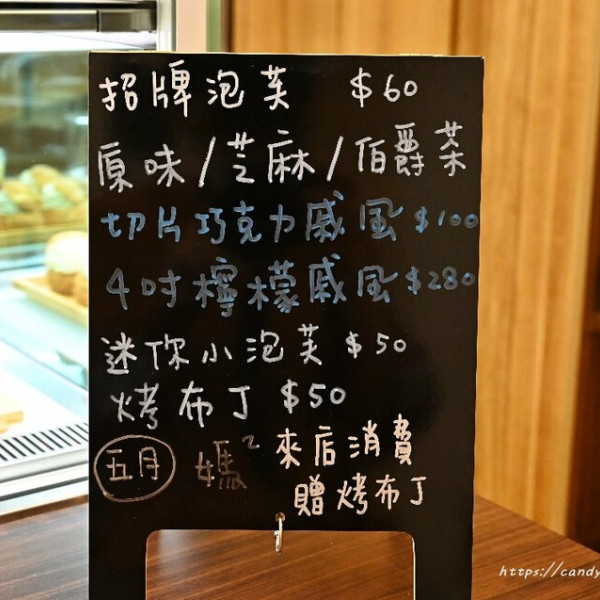 招牌泡芙 $60
原味/芝麻/伯爵茶
切片巧克力戚風 $100
4吋檸檬戚風 $280
迷你小泡芙 $50
烤布丁 $50
五月 媽² 來店消費
贈烤布丁
https://candy